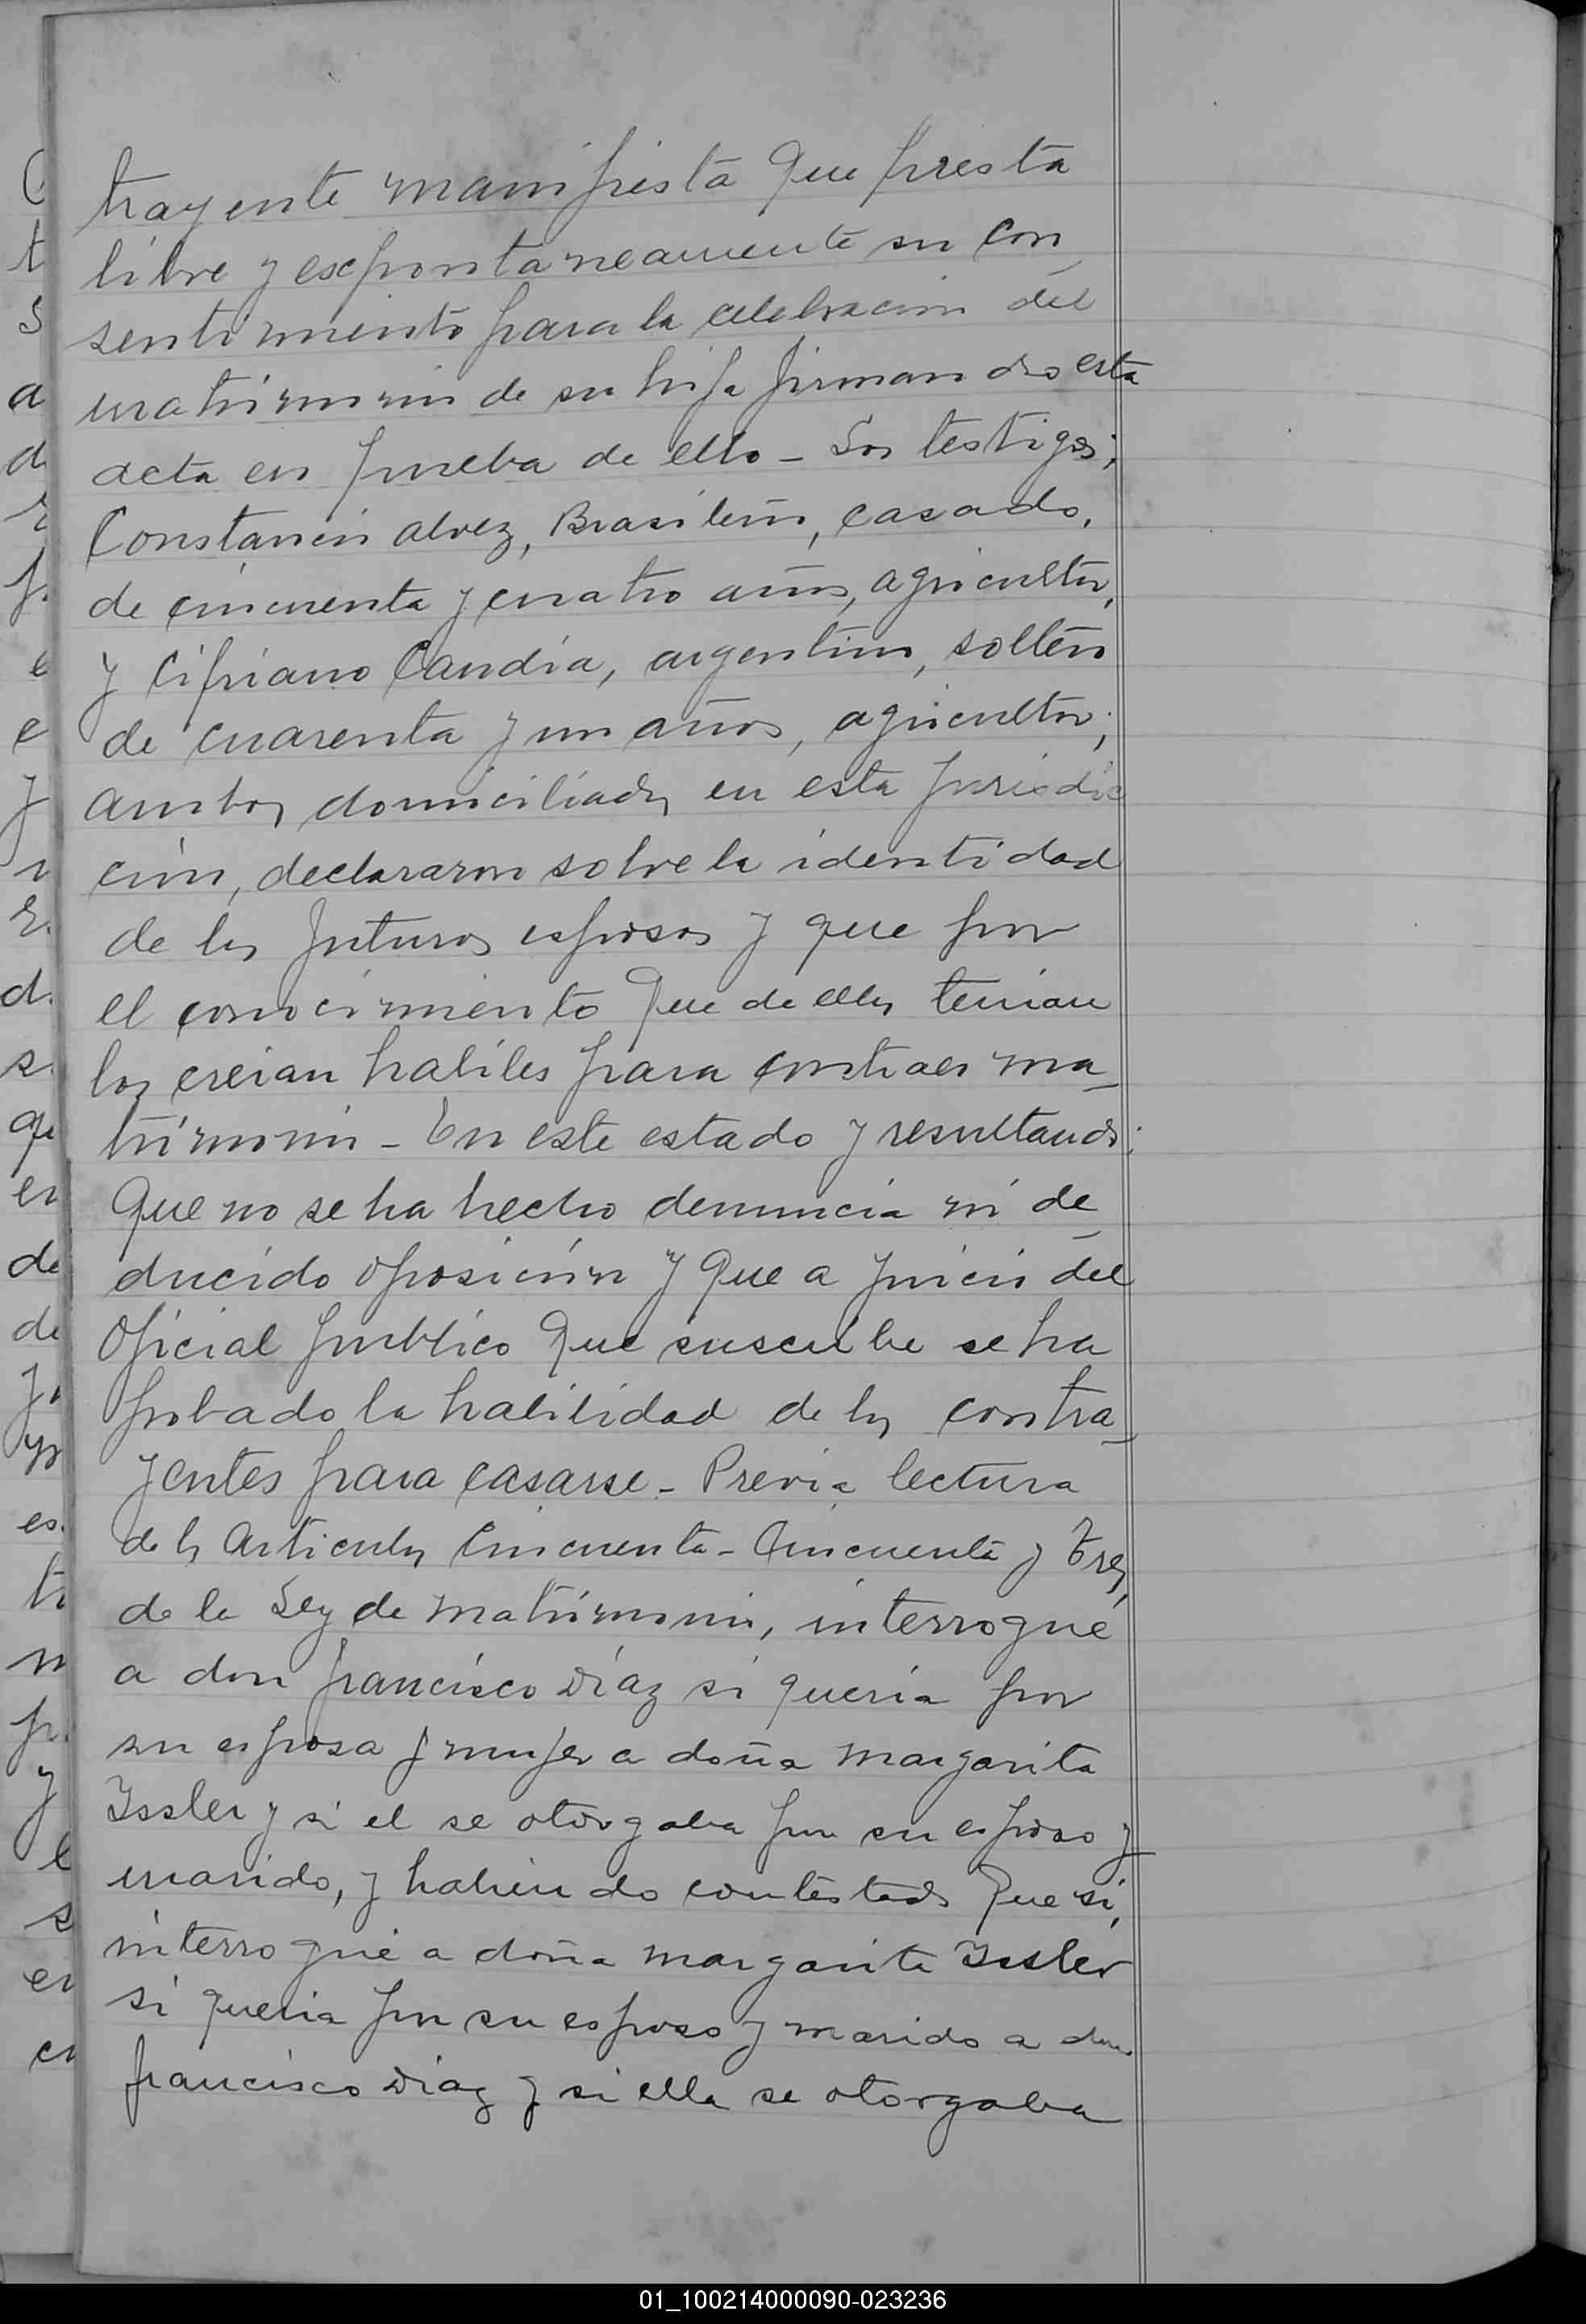 trayente manifiesta que presta
libre y expontaneamente su con
sentimiento para la celebracion del
matrimonio de su hija firmando esta
acta en prueba de ello - Los testigos;
Constancio Alvez, Brasileño, casado,
de cincuenta y cuatro años, agricultor,
y Cipriano Candia, argentino, soltero
de cuarenta y un años, agricultor;
ambos domiciliados en esta jurisdic
ción, declararon sobre la identidad
de los futuros esposos y que por
el conocimiento que de ellos tenian
los creian habiles para contraer ma_
trimonio - En este estado y resultando:
Que no se ha hecho denuncia ni de_
ducido oposición y que a juicio del
Oficial publico que suscribe se ha
probado la habilidad de los contra_
yentes para casarse - Previa lectura
de los Articulos Cincuenta - Cincuenta y Tres,
de la Ley de matrimonio, interrogué
a don francisco Díaz si queria por
su esposa y mujer a doña Margarita
Issler y si el se otorgaba por su esposo y
marido, y habiendo contestado que si,
interrogué a doña Margarita Issler
si queria por su esposo y marido a don
francisco Diaz y si ella se otorgaba
01_100214000090-023236